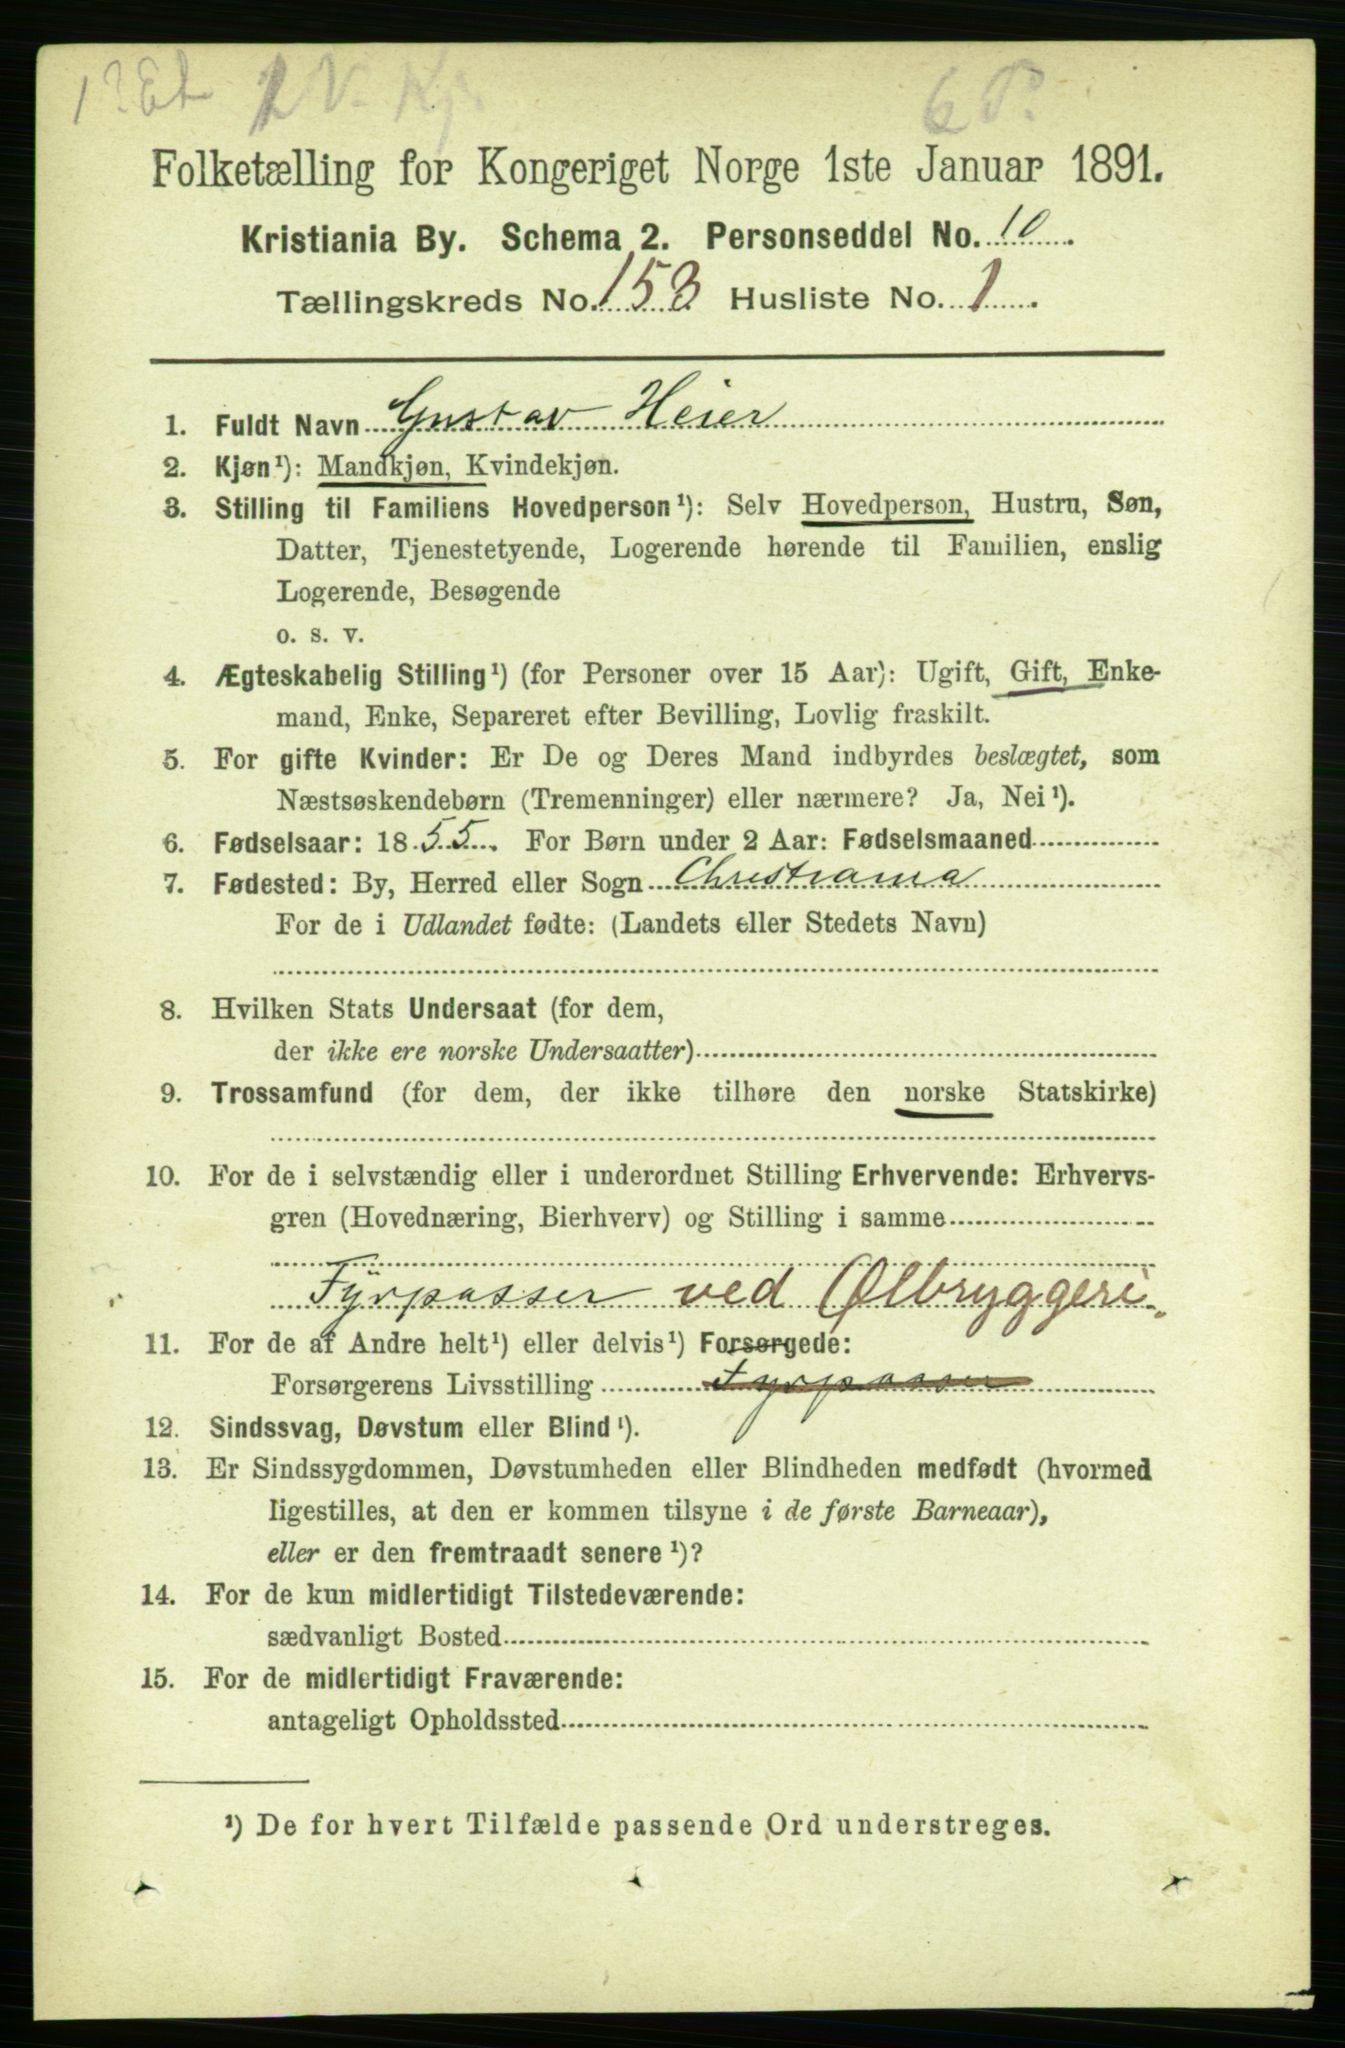 1ste Et. 2 V. Kj. 6 P.
Folketælling for Kongeriget Norge 1ste Januar 1891.
Kristiania By. Schema 2. Personseddel No. 10.
Tællingskreds No. 158 Husliste No. 1.
1. Fuldt Navn Gustav Heier
2. Kjøn¹): Mandkjøn, Kvindekjøn.
3. Stilling til Familiens Hovedperson¹): Selv Hovedperson, Hustru, Søn,
Datter, Tjenestetyende, Logerende hørende til Familien, enslig
Logerende, Besøgende
o. s. v.
4. Ægteskabelig Stilling¹) (for Personer over 15 Aar): Ugift, Gift, Enke-
mand, Enke, Separeret efter Bevilling, Lovlig fraskilt.
5. For gifte Kvinder: Er De og Deres Mand indbyrdes beslægtet, som
Næstsøskendebørn (Tremenninger) eller nærmere? Ja, Nei¹).
6. Fødselsaar: 1855. For Børn under 2 Aar: Fødselsmaaned
7. Fødested: By, Herred eller Sogn Christiania
For de i Udlandet fødte: (Landets eller Stedets Navn)
8. Hvilken Stats Undersaat (for dem,
der ikke ere norske Undersaatter)
9. Trossamfund (for dem, der ikke tilhøre den norske Statskirke)
10. For de i selvstændig eller i underordnet Stilling Erhvervende: Erhvervs-
gren (Hovednæring, Bierhverv) og Stilling i samme
Fyrpasser ved Ølbryggeri.
11. For de af Andre helt¹) eller delvis¹) Forsørgede:
Forsørgerens Livsstilling Fyrpasser
12. Sindssvag, Døvstum eller Blind¹).
13. Er Sindssygdommen, Døvstumheden eller Blindheden medfødt (hvormed
ligestilles, at den er kommen tilsyne i de første Barneaar),
eller er den fremtraadt senere¹)?
14. For de kun midlertidigt Tilstedeværende:
sædvanligt Bosted
15. For de midlertidigt Fraværende:
antageligt Opholdssted
¹) De for hvert Tilfælde passende Ord understreges.